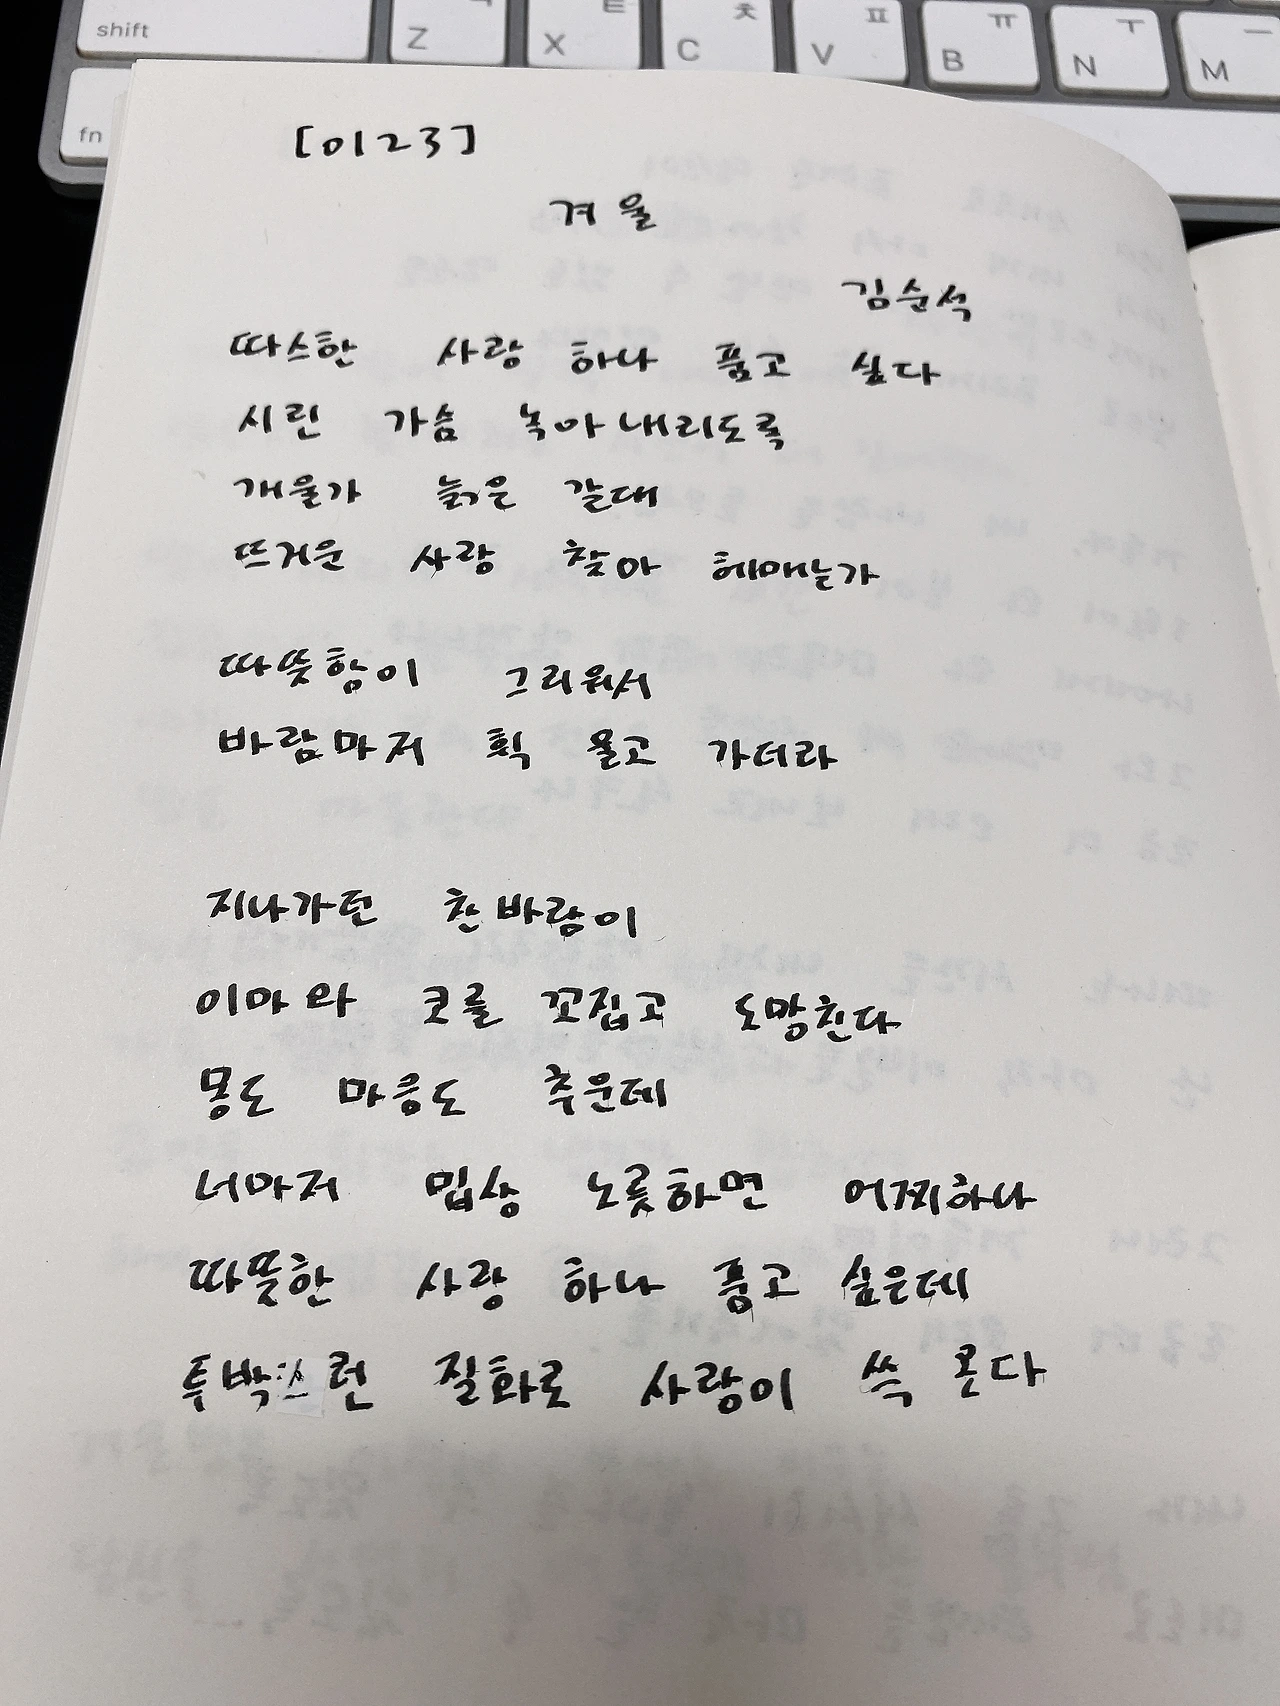 shift
Z
X
ㅊ
C
ㅍ
V
ㅠ
B
ㅜ
N
ㅡ
M
fn
[0123]
겨울
김순석
따스한 사랑 하나 품고 싶다
시린 가슴 녹아내리도록
개울가 늙은 갈대
뜨거운 사랑 찾아 헤매는가
따뜻함이 그리워서
바람마저 휙 울고 가더라
지나가던 찬바람이
이마와 코를 꼬집고 도망친다
몽도 마음도 추운데
너마저 밉상 노릇하면 어찌하나
따뜻한 사랑 하나 품고 싶은데
투박스런 질화로 사랑이 쓱 온다